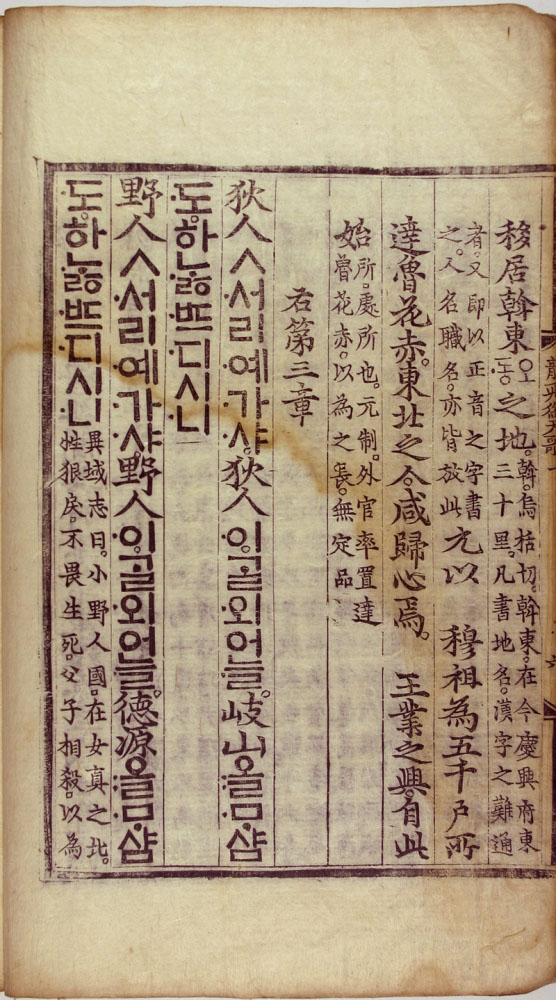 移居斡東오동之地。斡。烏括切。斡東。在今慶興府東三十里。凡書地名。漢字之難通
者。又即以正音之字書之。人名職名。亦皆放此元以 穆祖為五千戶所
達魯花赤。東北之人。咸歸心焉。 王業之興。自此
始所。處所也。元制。外官率置達魯花赤。以為之長。無定品
右第三章
狄人ㅅ서리예가샤。狄人이ᄀᆞᆯ외어늘。岐山올ᄆᆞ샴
도。하ᄂᆞᇙᄠᅳ디시니
野人ㅅ서리예가샤。野人이ᄀᆞᆯ외어늘。德源올ᄆᆞ샴
도。하ᄂᆞᇙᄠᅳ디시니異域志曰。小野人國。在女真之北。姓狠戾。不畏生死。父子相殺。以為